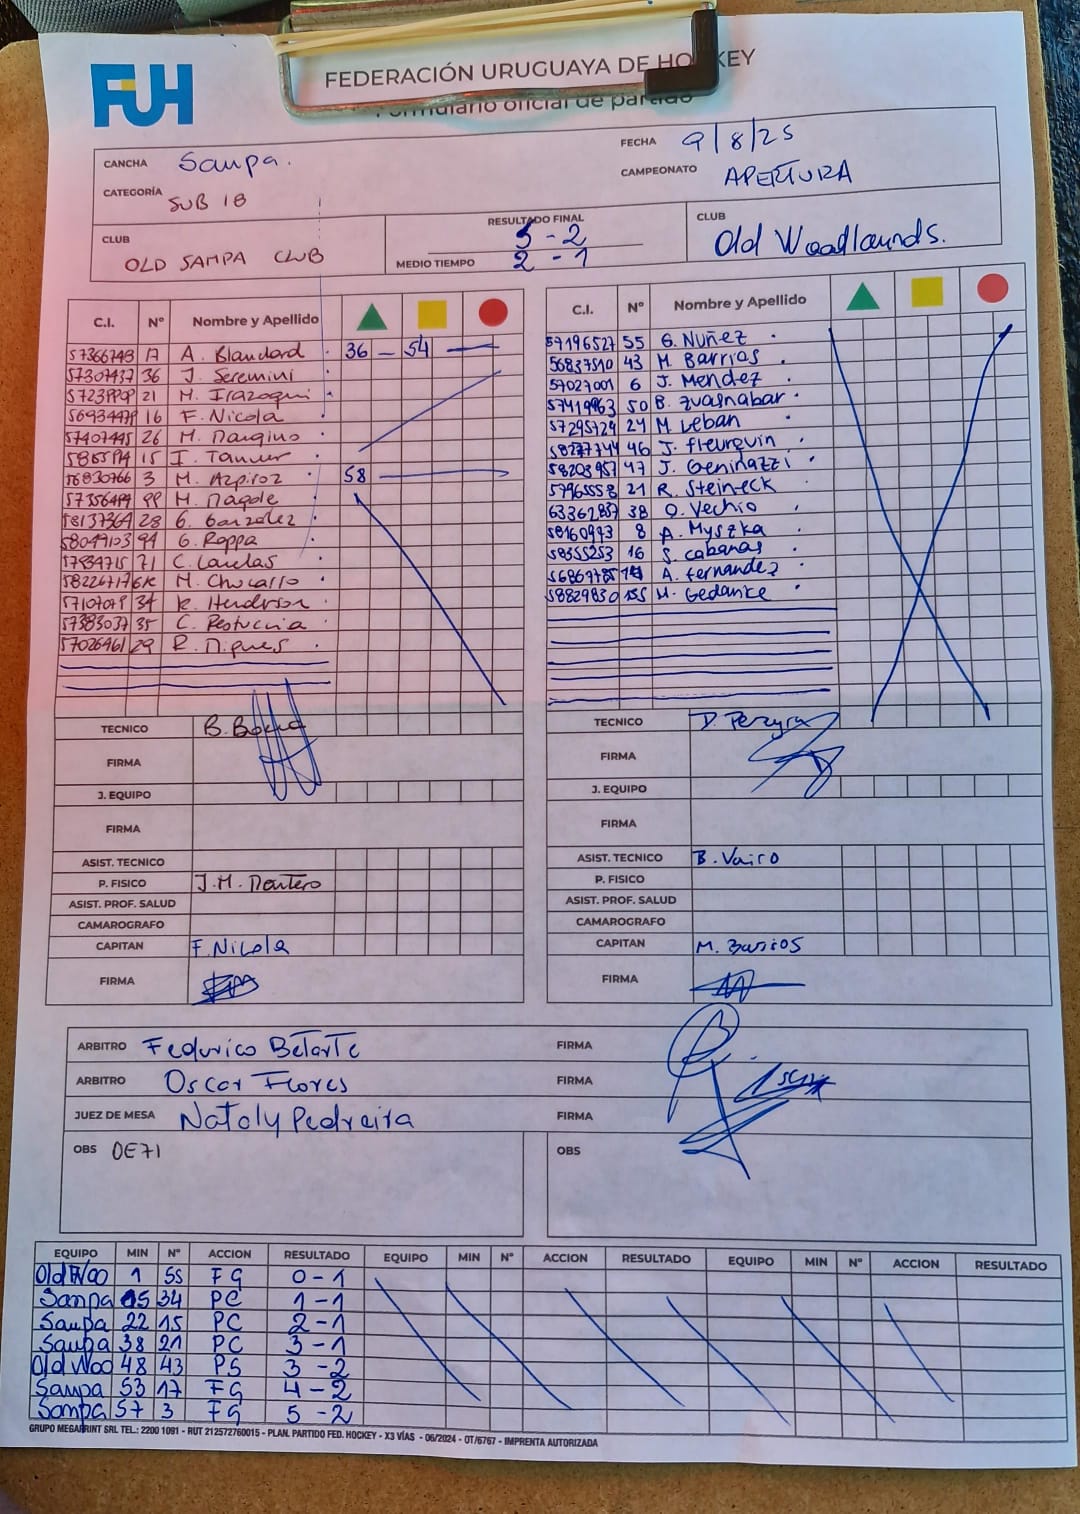 FUH
FEDERACIÓN URUGUAYA DE HOCKEY
Formulario oficial de partido
CANCHA Sampa. FECHA 9/8/25
CATEGORÍA SUB 18 CAMPEONATO APERTURA
CLUB OLD SAMPA CLUB
RESULTADO FINAL 5-2
MEDIO TIEMPO 2-1
CLUB Old Woodlounds.
C.I. Nº Nombre y Apellido
57366743 17 A. Blandard 36 - 54
57307437 36 J. Seremini
21 M. Irazoqui
16 F. Nicola
57407445 26 M. Mangino
15 I.
56830766 3 M. Azpiroz 58
99 M. Magole
58137364 28 G. Gonzalez
58049103 94 G. Roppa
71 C.
M. Chucarro
34 K. Henderson
57383037 35 C.
57026461 29 R.
C.I. Nº Nombre y Apellido
57196527 55 G. Nuñez
56837510 43 M. Barrios
57027001 6 J. Mendez
57419963 50 B. Zuasnabar
57295729 24 M. Leban
58277344 46 J. fleurquin
58203957 47 J. Geninazzi
57965558 21 R. Steineck
63362837 38 O. Vechio
58160993 8 A. Myszka
58355253 16 S. Cabanas
A. fernandez
58829830 M. Gedanke
TECNICO B.
FIRMA
J. EQUIPO
FIRMA
ASIST. TECNICO
P. FISICO J.M. Montero
ASIST. PROF. SALUD
CAMAROGRAFO
CAPITAN F. Nicola
FIRMA
TECNICO D. Pereyra
FIRMA
J. EQUIPO
FIRMA
ASIST. TECNICO B. Vairo
P. FISICO
ASIST. PROF. SALUD
CAMAROGRAFO
CAPITAN M. Barrios
FIRMA
ARBITRO Federico Betarte FIRMA
ARBITRO Oscar Flores FIRMA
JUEZ DE MESA Nataly Pedreira FIRMA
OBS DE71 OBS
EQUIPO MIN Nº ACCION RESULTADO EQUIPO MIN Nº ACCION RESULTADO EQUIPO MIN Nº ACCION RESULTADO
Old Woo 1 55 FG 0-1
Sampa 15 34 PC 1-1
Sampa 22 15 PC 2-1
Sampa 38 21 PC 3-1
Old Woo 48 43 PS 3-2
Sampa 53 17 FG 4-2
Sampa 57 3 FG 5-2
GRUPO MEGAPRINT SRL TEL.: 2200 1091 - RUT 212572760015 - PLAN. PARTIDO FED. HOCKEY - X3 VÍAS - 06/2024 - OT/6767 - IMPRENTA AUTORIZADA